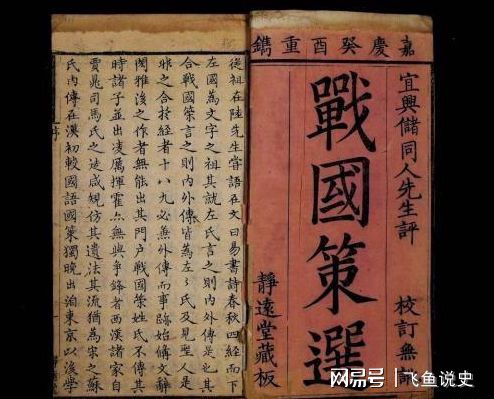 嘉慶癸酉重鐫
宜興儲同人先生評
校訂無訛
戰國策選
靜遠堂藏板
從祖在陸先生嘗語在文曰易書詩春秋四經而下
左國為文字之祖其就左氏言之則內外傳是也其
合戰國策言之則內外傳皆為左氏及見聖人是
非之合於經者十八九必無外傳而事跡始備文辭
閎雅後之作者無能出其門戶戰國策姓氏不傳其
時諸子並出凌厲揮霍無與爭鋒者西漢諸家自
賈晁司馬氏之述咸規仿其遺法其流猶為宋之蘇
氏內傳在漢初較國語國策獨晚出洎東京以後學
序
网易号 | 飞鱼说史